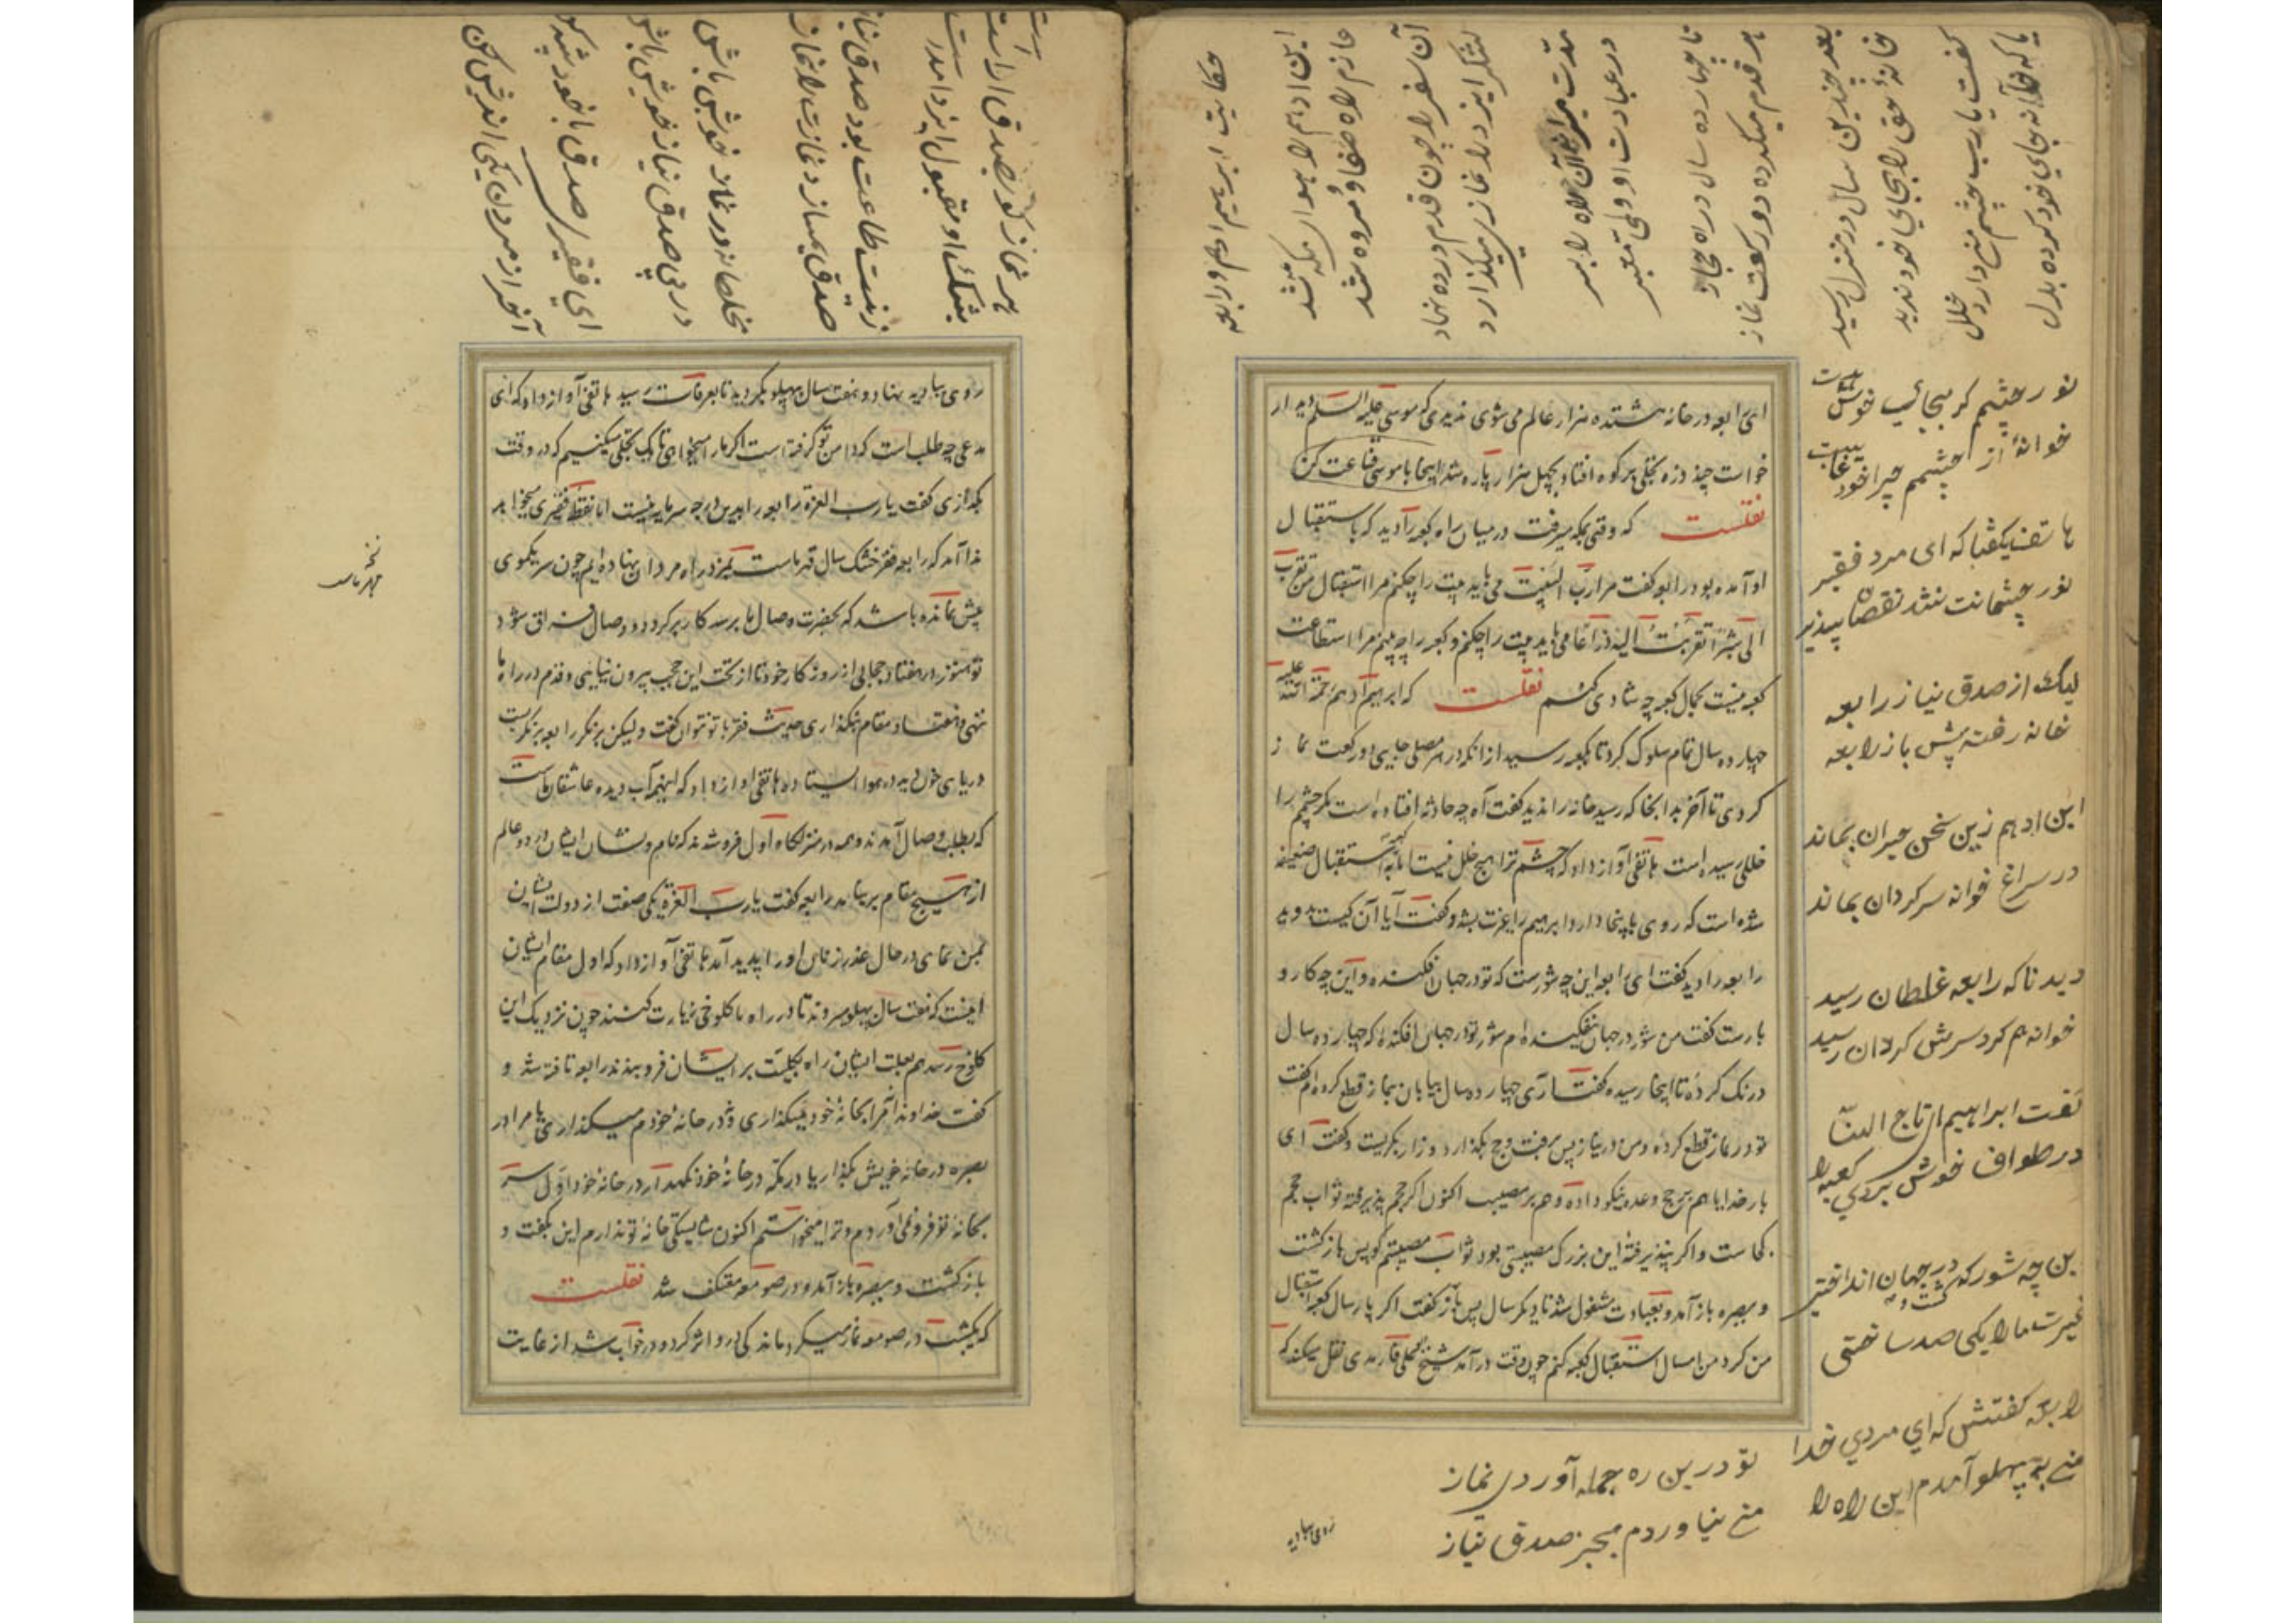 ای رابعه در خانه هشتده هزار عالم می شوی ندیدی که موسی علیه السلام دیدار
خواست چند ذره تجلی بر کوه افتاد بچهل هزار پاره شد اینجا با موسی قناعت کن
نقلست که وقتی بمکه میرفت در میان راه کعبه را دید که باستقبال
او آمده بود رابعه گفت مرا رب البیت می باید بیت را چکنم مرا استقبال من تقرب
الی شبراً تقربت الیه ذراعا می باید بیت را چکنم و کعبه را چه بینم مرا استطاعت
کعبه نیست بجمال کعبه چه شادی کنم نقلست که ابراهیم ادهم رحمة الله علیه
چهارده سال تمام سلوک کرد تا بکعبه رسید از انکه در هر مصلی جایی دو رکعت نماز
کردی تا آخر بدانجا که رسید خانه را ندید گفت آه چه حادثه افتاده است مگر چشم را
خللی رسیده است هاتفی آواز داد که چشم ترا هیچ خلل نیست اما کعبه استقبال ضعیفه
شده است که روی باینجا دارد ابراهیم را غیرت بشد و گفت آیا آن کیست بدوید
رابعه را دید گفت ای رابعه این چه شورست که تو در جهان افکنده و این چه کار و
بارست گفت من شور در جهان نفکنده ام شور تو در جهان افکنده که چهارده سال
درنگ کرده تا اینجا رسیده گفت آری چهارده سال بیابان بنماز قطع کرده ام گفت
تو در نماز قطع کرده و من در نیاز پس برفت و حج بگذارد و زار بگریست و گفت ای
بار خدایا هم بر حج وعده نیکو داده و هم بر مصیبت اکنون اگر حجم پذیرفته ثواب حجم
کجاست و اگر نپذیرفته این بزرگ مصیبتی بود ثواب مصیبتم کو پس باز گشت
و ببصره باز آمد و بعبادت مشغول شد تا دیگر سال پس باز گفت اگر پارسال کعبه استقبال
من کرد من امسال استقبال کعبه کنم چون وقت در آمد شیخ علی فارمدی نقل میکند که
حکایت ابراهیم ادهم و رابعه
ابن ادهم را هوای مکه شد
عازم راه صفا و مروه شد
آن سفر را چون قدم در ره نهاد
در عبادت
تا چهارده سال در راه مجاز
هر قدم میکرده دو رکعت نماز
بعد چندین سال در منزل رسید
خانهٔ حق را بجای خود ندید
گفت یا رب چشم من دارد خلل
یا که خانه جای خود کرده بدل
نور چشمم گر بجائی خویش است
خوانه از چشمم چرا خود غایبست
هاتف بگفتا که ای مرد فقیر
نور چشمانت نشد نقصان پذیر
لیک از صدق نیاز رابعه
خانه رفته پیش باز رابعه
ابن ادهم زین سخن حیران بماند
در سراغ خوانه سرگردان بماند
دید ناگه رابعه غلطان رسید
خوانه هم گرد سرش گردان رسید
گفت ابراهیم ای تاج النسا
در طواف خویش بردی کعبه را
این چه شور که در جهان انداختی
غیرت ما را یکی صد ساختی
رابعه گفتش که ای مردی خدا
من به پهلو آمدم این راه را
تو درین ره جمله آوردی نماز
من نیاوردم بجز صدق نیاز
روی ببادیه
هر نماز کو بصدق آراست
بیشک او مقبول ایزد آمدست
زینت طاعت بود صدق نیاز
مخلصانه در نماز خویش باش
در پی صدق نیاز خویش باش
ای فقیر
روی ببادیه نهاد و هفت سال بپهلو بگردید تا بعرفات رسید هاتفی آواز داد که ای
مدعی چه طلب است که دامن تو گرفته است اگر ما را میخواهی تا یک تجلی میکنیم که در وقت
بگدازی گفت یا رب العزة رابعه را بدین درجه سرمایه نیست اما نقطه فقری میخواهد
ندا آمد که رابعه فقر خشک سال قهر ماست که در راه مردان نهاده ایم چون سر یکموی
بیش نمانده باشد که بحضرت وصال ما برسد کار برگردد و وصال فراق شود
تو هنوز در هفتاد حجابی از روزگار خود تا از تحت این حجب بیرون نیایی و قدم در راه ما
ننهی و هفتاد مقام نگذاری حدیث فقر با تو نتوان گفت ولیکن برنگر رابعه برنگریست
دریای خون دید در هوا ایستاده هاتفی آواز داد که اینهمه آب دیده عاشقان ماست
که بطلب وصال آمدند و همه در منزلگاه اول فرو شدند که نام و نشان ایشان در دو عالم
از هیچ مقام بر نیامد رابعه گفت یا رب العزة یکی صفت از دولت ایشان
بمن نمای در حال عذر زنان او را پدید آمد هاتفی آواز داد که اول مقام ایشان
اینست که هفت سال بپهلو میروند تا در راه ما کلوخی زیارت کنند چون نزدیک این
کلوخ رسند هم بعلت ایشان راه بکلیت بر ایشان فرو بندند رابعه تافته شد و
گفت خداوندا مرا بخانهٔ خود نمیگذاری و در خانهٔ خودم نمیگذاری یا مرا در
بصره در خانه خویش بگذار یا در مکه در خانهٔ خود نگهدار در خانه خود اول سر
بخانهٔ تو فرو نمی آوردم و ترا میخواستم اکنون شایستگی خانهٔ تو ندارم این بگفت و
باز گشت و ببصره باز آمد و در صومعه معتکف شد نقلست
که یکشب در صومعه نماز میکرد ماندگی درو اثر کرد و در خواب شد از غایت